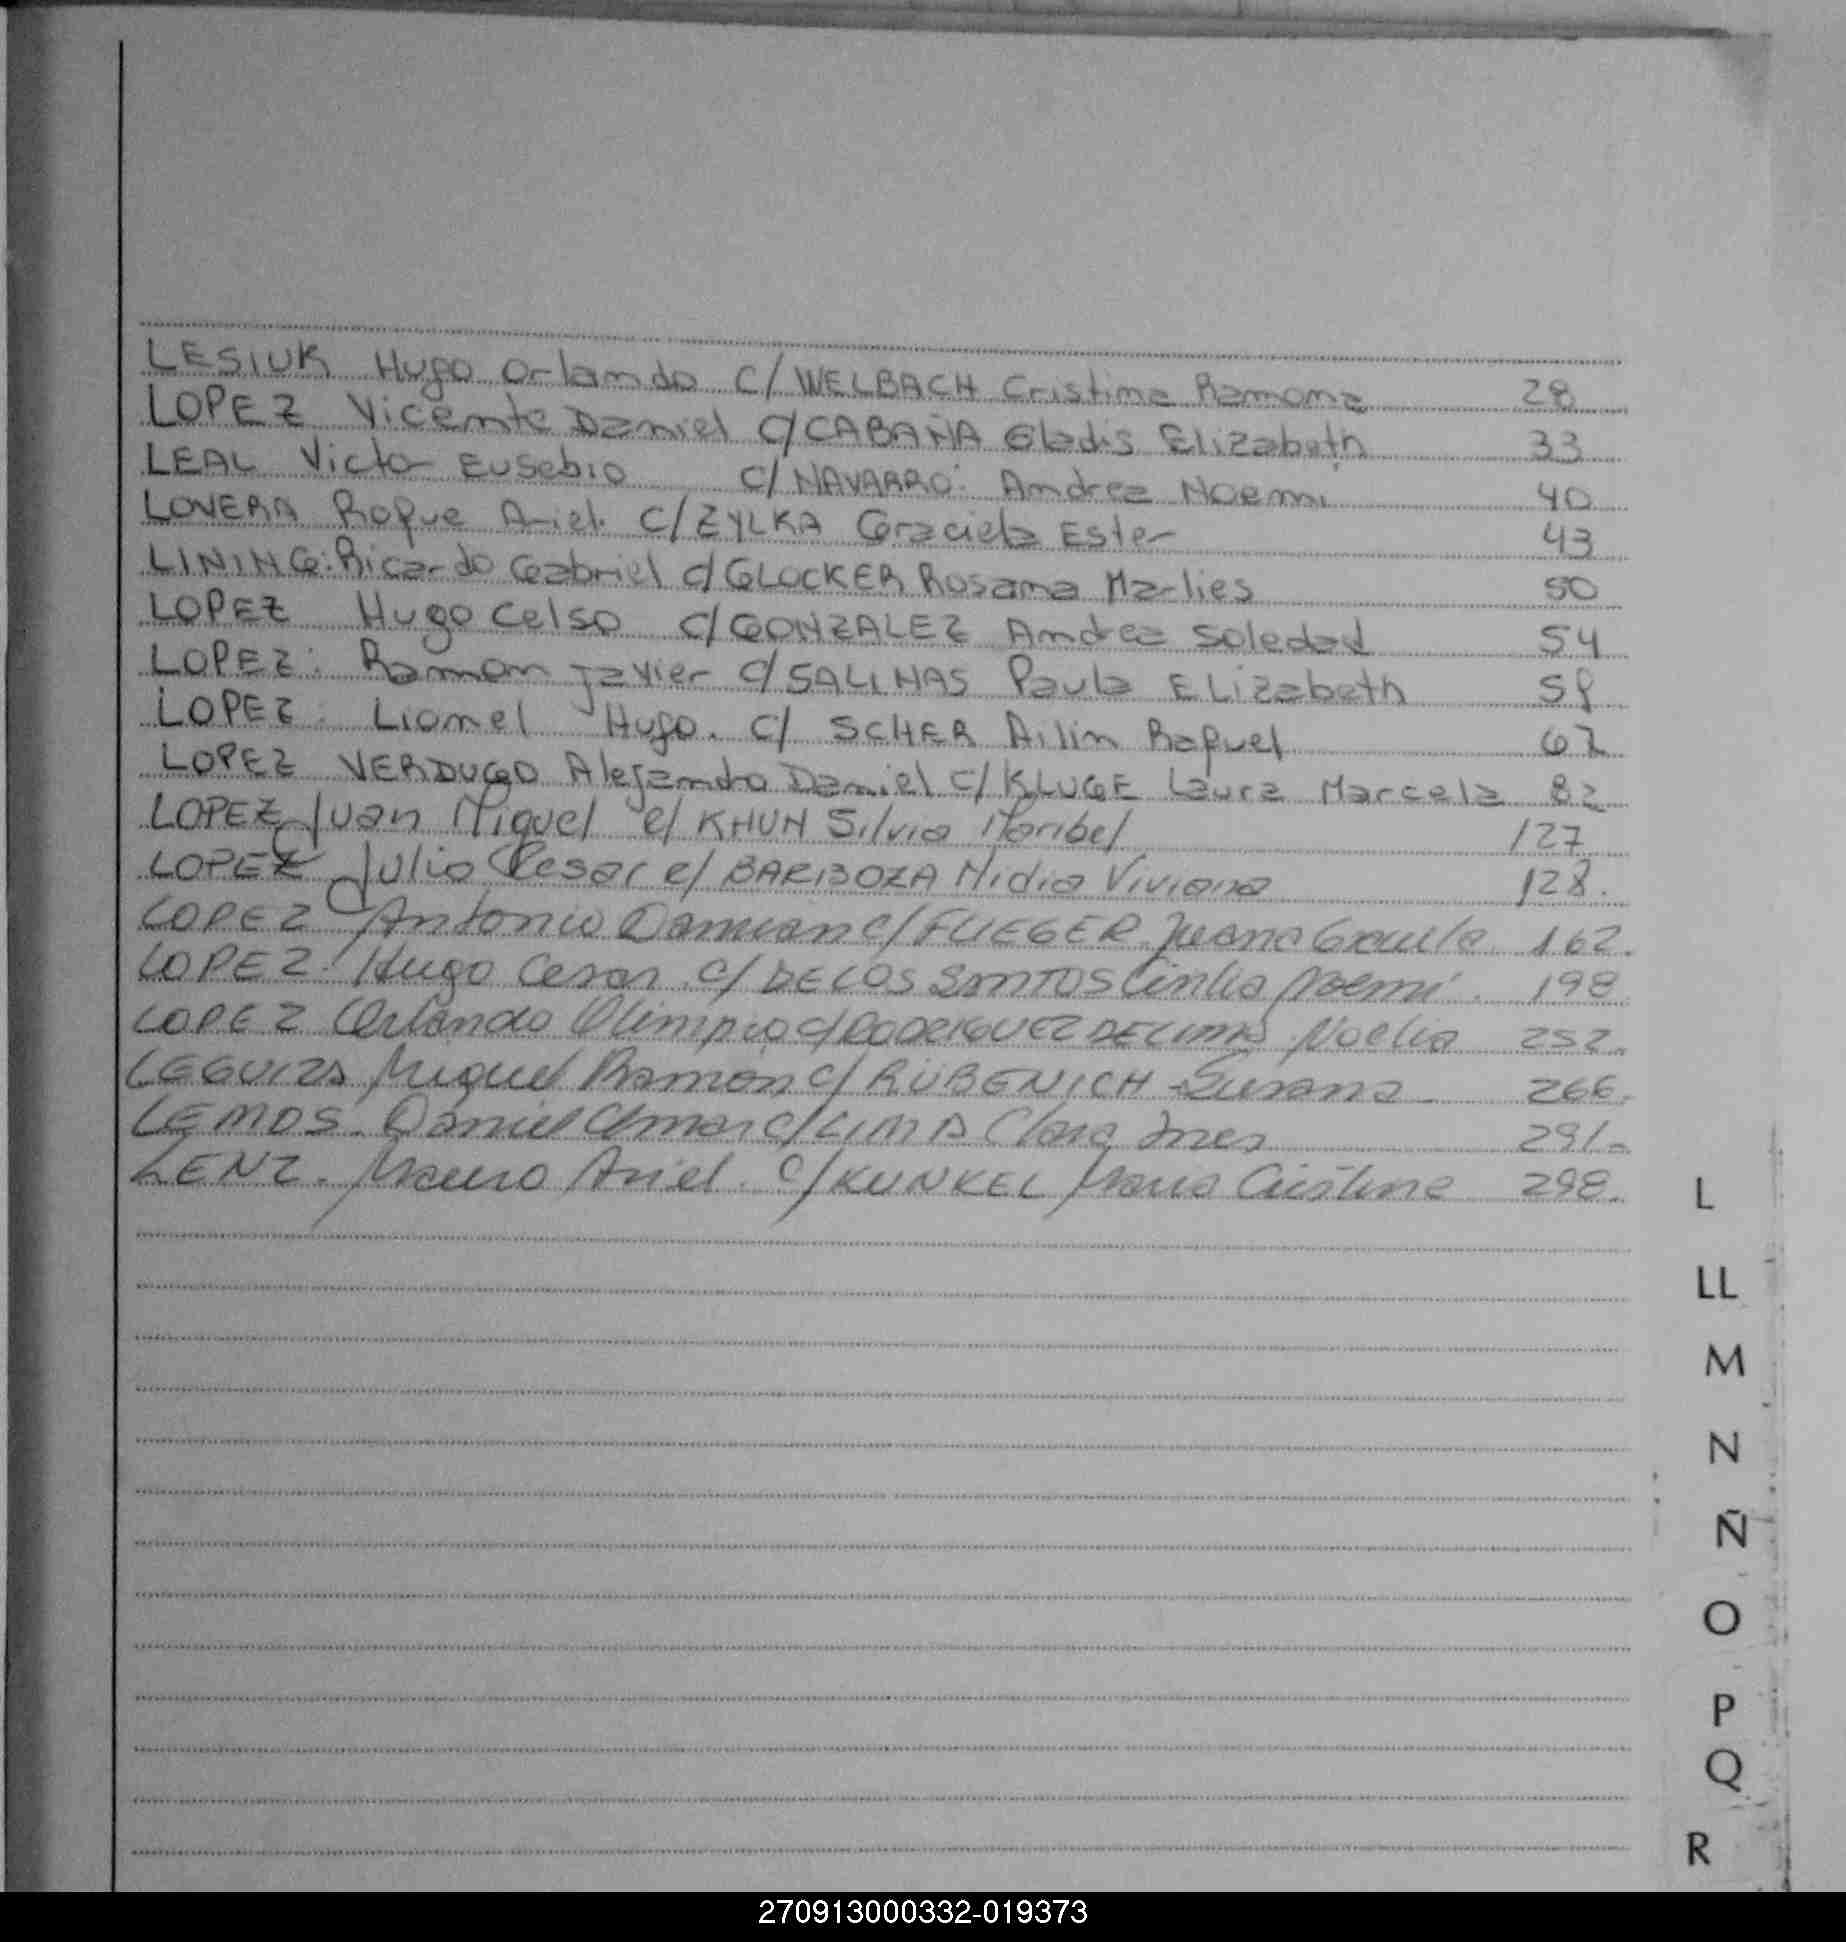 LESIUK Hugo Orlando C/ WELBACH Cristina Ramona 28
LOPEZ Vicente Daniel C/ CABAÑA Gladis Elizabeth 33
LEAL Victor Eusebio C/ NAVARRO: Andrea Noemi 40
LOVERA Roque Ariel. C/ ZYLKA Graciela Ester 43
LINING: Ricardo Gabriel c/ GLOCKER Rosana Marlies 50
LOPEZ Hugo Celso c/ GONZALEZ Andrea Soledad 54
LOPEZ: Ramon Javier c/ SALINAS Paula Elizabeth
LOPEZ: Lionel Hugo. C/ SCHER Ailin Raquel 62
LOPEZ VERDUGO Alejandro Daniel C/ KLUGE Laura Marcela 82
LOPEZ Juan Miguel c/ KHUN Silvia Maribel 127
LOPEZ Julio Cesar c/ BARBOZA Nidia Viviana 128.
LOPEZ Antonio Damian c/ FLIEGER Juana Graciela 162.
LOPEZ. Hugo Cesar c/ DE LOS SANTOS Cintia Noemi. 198
LOPEZ Orlando Olimpio c/ RODRIGUEZ DE LIMA Noelia 252.
LEGUIZA Miguel Ramon c/ RUBENICH Susana 266.
LEMOS. Daniel Omar c/ LIMA Clara Ines 291.
LENZ. Mauro Ariel. c/ KUNKEL Maria Cristina 298.
L
LL
M
N
Ñ
O
P
Q
R
270913000332-019373